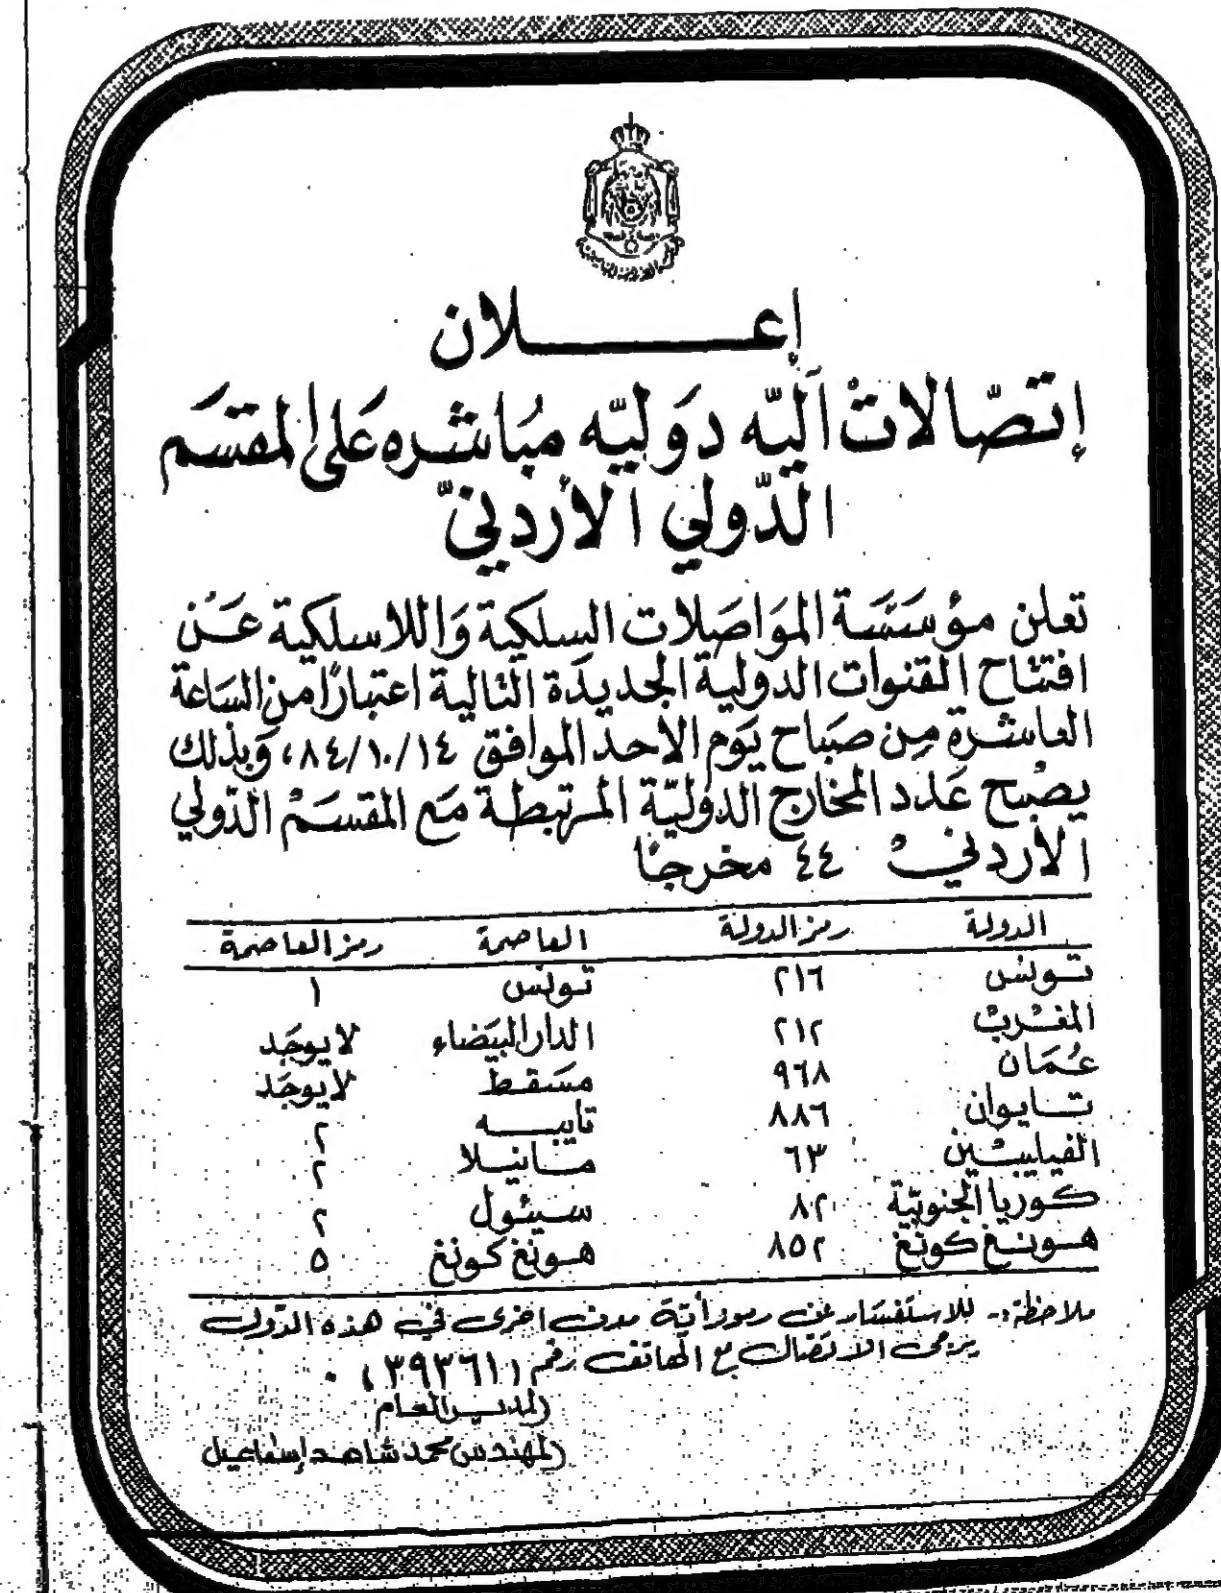 إعـــــلان
إتصّالاتْ آليّه دَوليّه مبُاشره عَلى المقسَم
الدّولي الأردنيّ
تعلن مؤسَسَة الموَاصَلات السلكية وَاللاسلكية عَن
افتتاح القنوات الدولية الجديدَة التالية اعتبارًا من السَاعة
العاشرة مِن صبَاح يَوم الاحد الموافق ٨٤/١٠/١٤، وَبذلك
يصْبح عَدد المخارج الدوليّة المرتبطة مَع المقسَمْ الدّولي
الأردنيْ ٤٤ مخرجًا
الدولة رمز الدولة العاصمة رمز العاصمة
تـونس ٢١٦ تونس ١
المغربْ ٢١٢ الدار البيَضاء لا يوجَد
عُمَان ٩٦٨ مسَقط لا يوجَد
تـايوان ٨٨٦ تايبـه ٢
الفيليبـين ٦٣ مـانيلا ٢
كوريا الجنوبيّة ٨٢ سيئول ٢
هـونـغ كونغ ٨٥٢ هـونغ كونغ ٥
ملاحظة:- للاستفسار عن رموز أية مدن اخرى في هذه الدول
يرجى الاتصال مع الهاتف رقم (٣٩٣٦١).
المدير العام
المهندس محمد شاهد إسماعيل